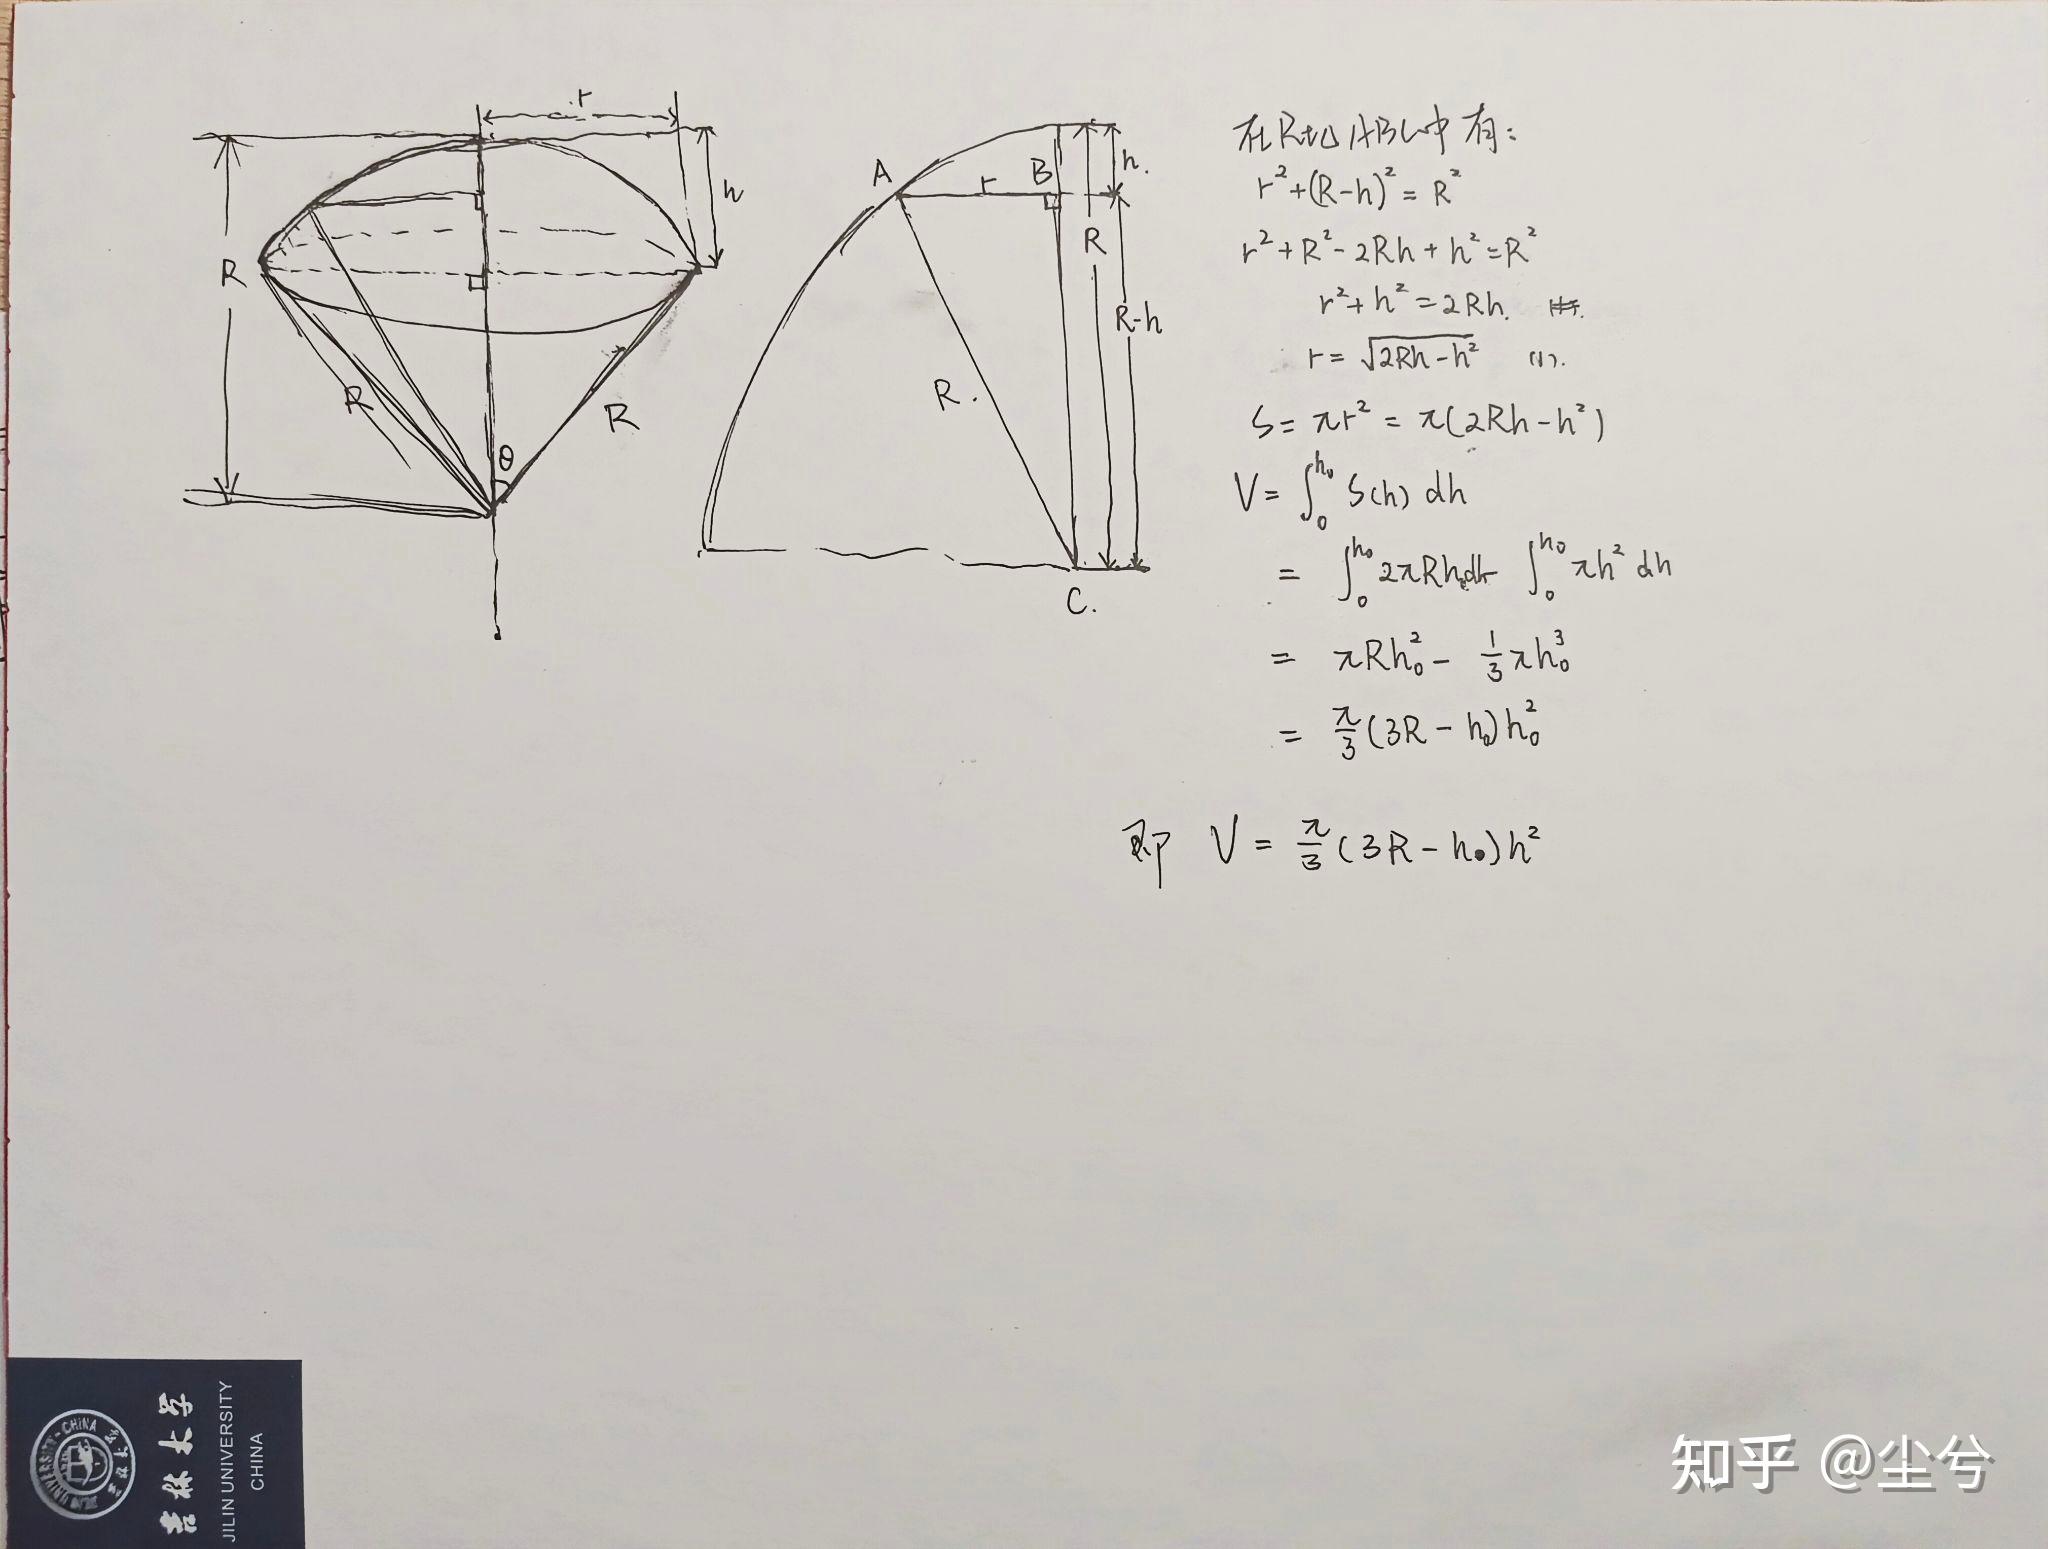 r
h
R
R
R
θ
A
B
r
h.
R
R-h
R.
C.
在Rt△ABC中有:
r²+(R-h)²=R²
r²+R²-2Rh+h²=R²
r²+h²=2Rh.
r=√(2Rh-h²) (1).
S=πr²=π(2Rh-h²)
V=∫₀^h₀ S(h) dh
=∫₀^h₀ 2πRh dh ∫₀^h₀ πh² dh
=πRh₀²-1/3πh₀³
=π/3(3R-h₀)h₀²
即 V=π/3(3R-h.)h²
吉林大学
JILIN UNIVERSITY
CHINA
知乎 @尘兮